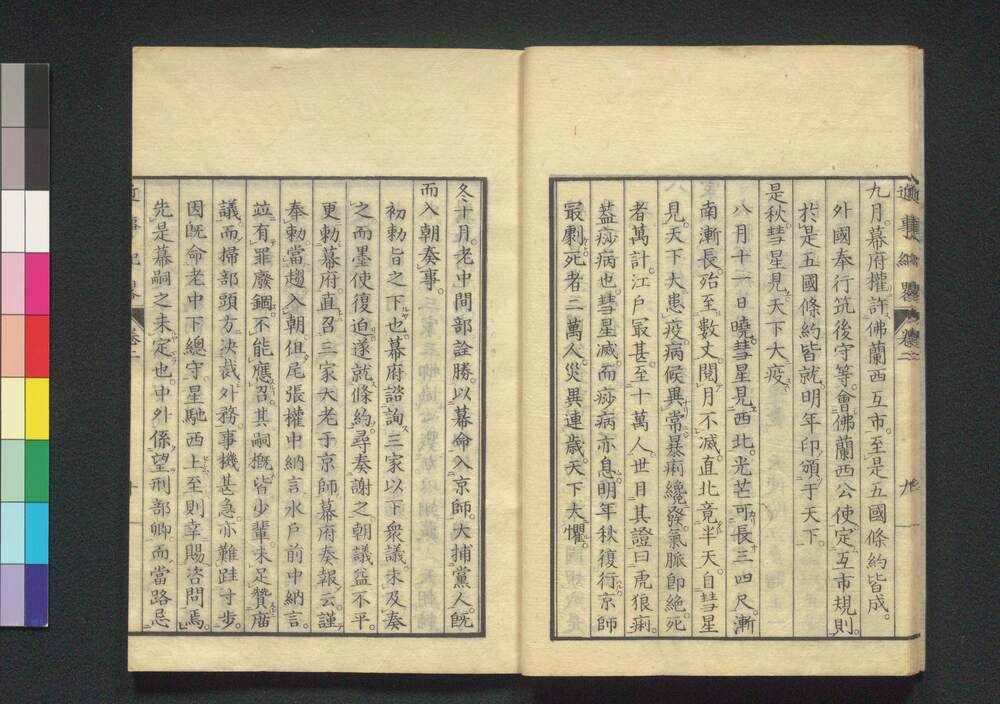 九月。幕府權許佛蘭西互市。至是五國條約皆成。
外國奉行筑後守等。會佛蘭西公使定互市規則。
於是五國條約皆就。明年印頒于天下。
是秋。彗星見。天下大疫。
八月十一日曉。彗星見西北。光芒可長三四尺。漸
南漸長。殆至數丈。閱月不滅。直北竟半天。自彗星
見。天下大患疫。病候異常。暴痢纔發。氣脈卽絕。死
者萬計。江戶最甚。至十萬人。世目其證曰虎狼痢。
蓋痧病也。彗星滅。而痧病亦息。明年秋復行。京師
最劇。死者二萬人。災異連歲。天下大懼。
冬十月。老中間部詮勝。以幕命入京師。大捕黨人。旣
而入朝奏事。
初勅旨之下也。幕府諮詢三家以下衆議。未及奏
之。而墨使復迫。遂就條約。尋奏謝之。朝議益不平。
更勅幕府。直召三家大老于京師。幕府奏報云。謹
奉勅當趨入朝。但尾張權中納言水戶前中納言。
竝有罪廢錮。不能應召。其嗣概皆少輩。未足贊庿
議。而掃部頭方決裁外務。事機甚急。亦難跬寸步。
因旣命老中下總守。星馳西上。至則幸賜咨問焉。
先是幕嗣之未定也。中外係望刑部卿。而當路忌